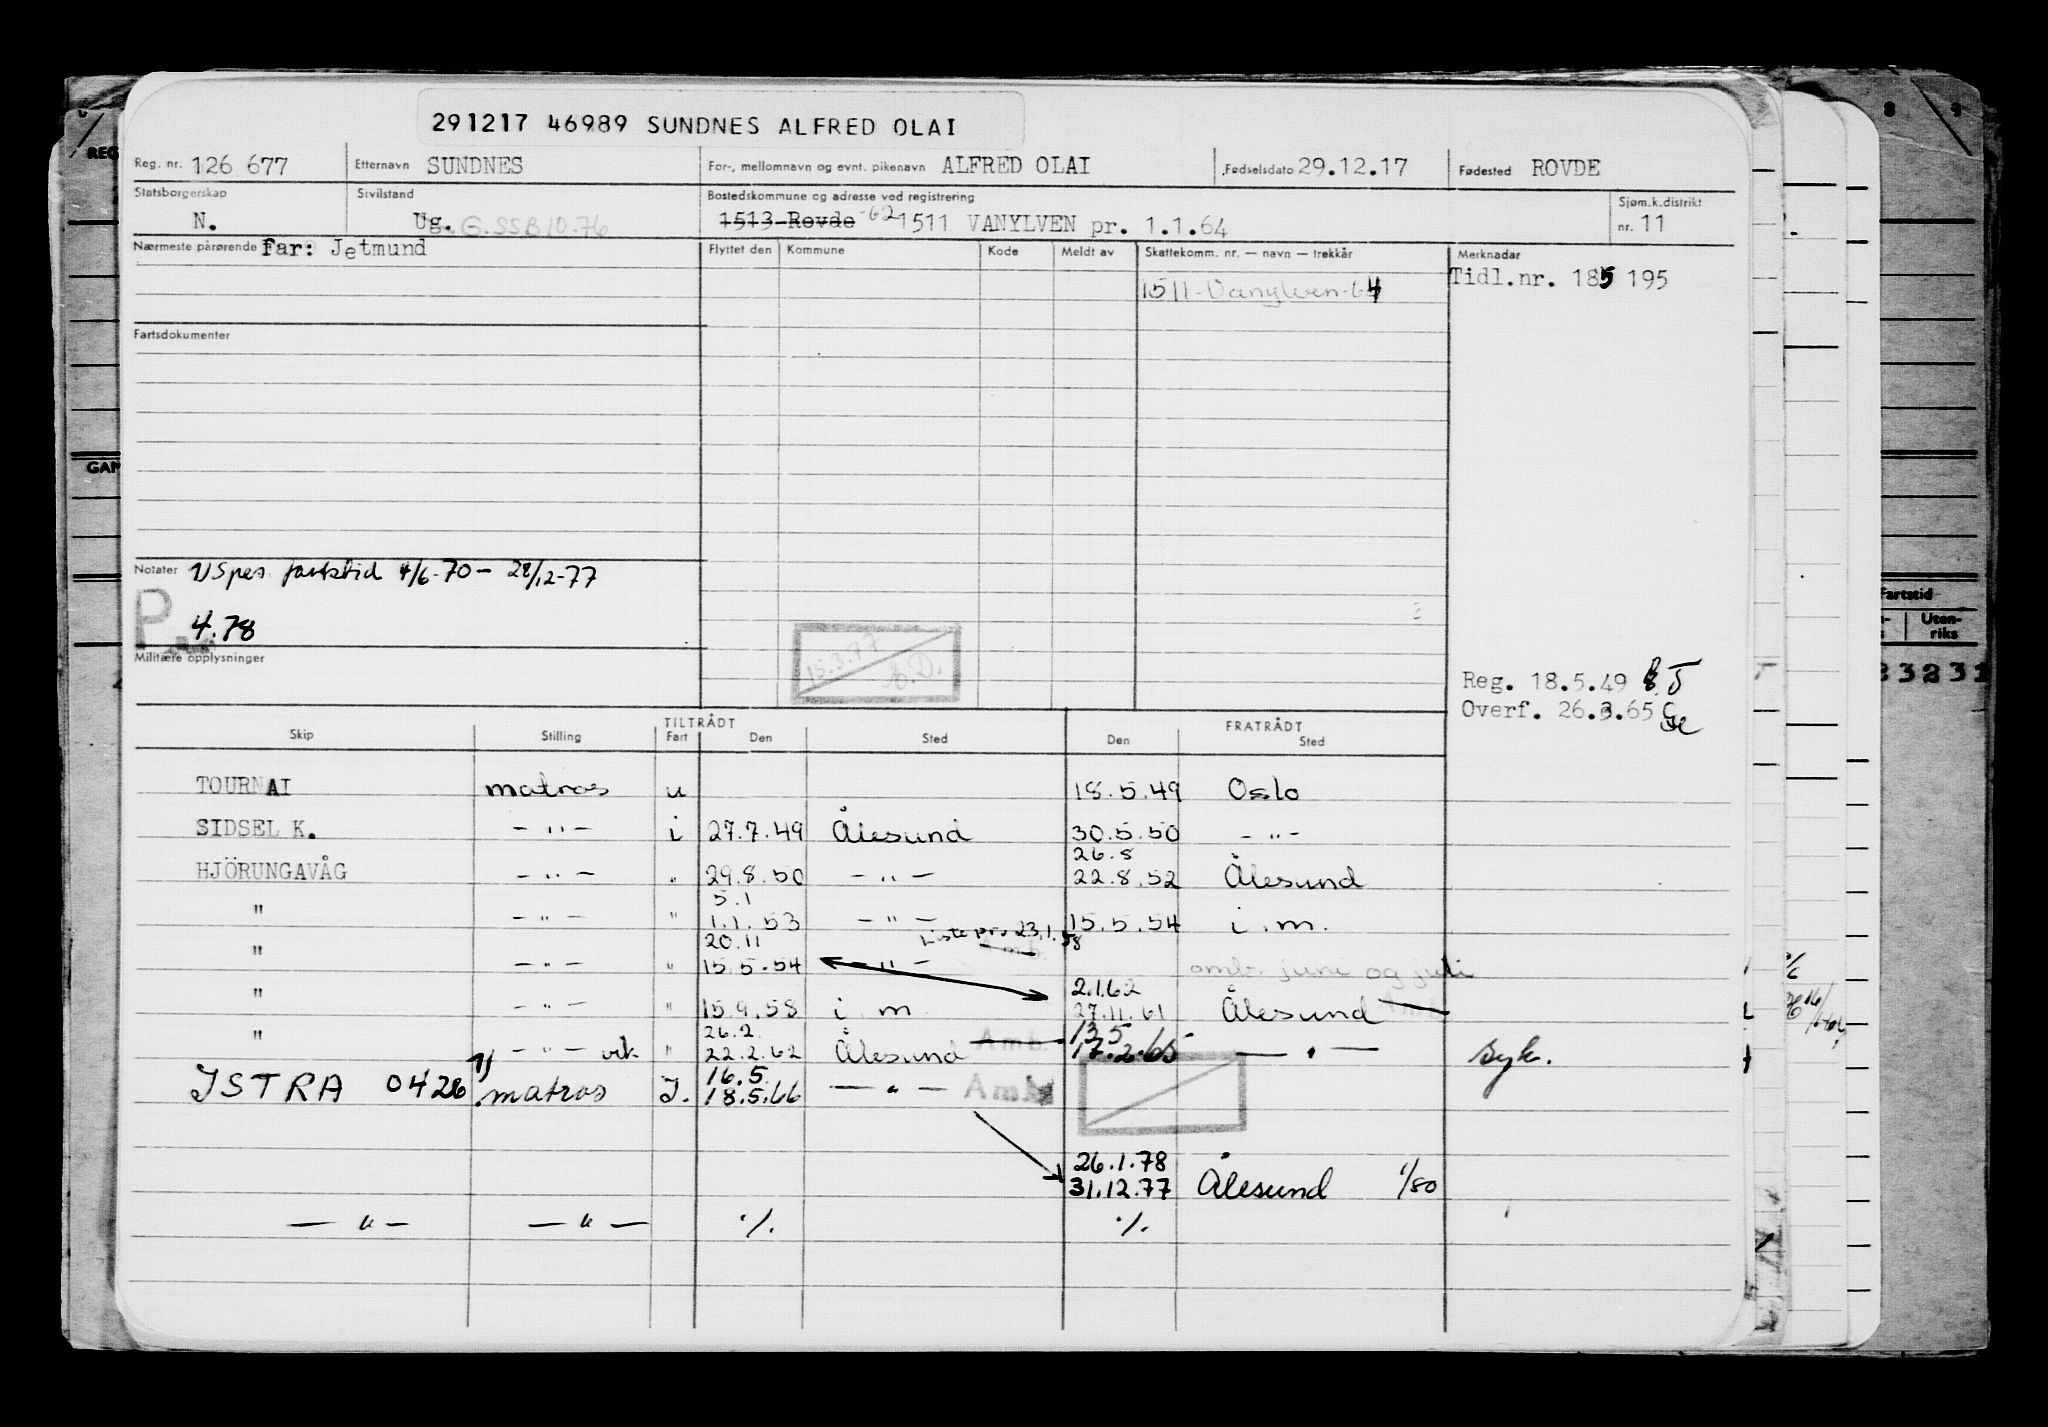 291217 46989 SUNDNES ALFRED OLAI
Reg. nr. 126 677 Etternavn SUNDNES For-, mellomnavn og evnt. pikenavn ALFRED OLAI Fødselsdato 29.12.17 Fødested ROVDE
Statsborgerskap Sivilstand Bostedskommune og adresse ved registrering Sjøm.k.distrikt
N. Ug. G.SSB10.76 1513 Rovde -62 1511 VANYLVEN pr. 1.1.64 nr. 11
Nærmeste pårørende far: Jetmund Flyttet den Kommune Kode Meldt av Skattekomm. nr. — navn — trekkår Merknader
1511-Vanylven-64 Tidl.nr. 185 195
Fartsdokumenter
Notater 1) Spes fartstid 4/6-70 — 28/12-77
P 4.78
15.3.77
Militære opplysninger
Reg. 18.5.49
Overf. 26.3.65
TILTRÅDT FRATRÅDT
Skip Stilling Fart Den Sted Den Sted
TOURNAI matros u 18.5.49 Oslo
SIDSEL K. — " — i 27.7.49 Ålesund 30.5.50 — " —
26.8
HJÖRUNGAVÅG — " — " 29.8.50 — " — 22.8.52 Ålesund
5.1
" — " — " 1.1.53 — " — 15.5.54 i.m.
20.11 Liste pr. 23.1.58
" — " — " 15.5.54 — " — omb. juni og juli
2.1.62
" — " — " 15.9.58 i m 27.11.61 Ålesund
26.2. Amb. 13.5
" — " — vik " 22.2.62 Ålesund 17.2.65 — " — syk.
1) 16.5
ISTRA 0426 matros I. 18.5.66 — " — Amb
26.1.78
31.12.77 Ålesund 1/80
— " — — " — ·/. ·/.
REG
GAN
8 9
Fartstid
Uten-
riks